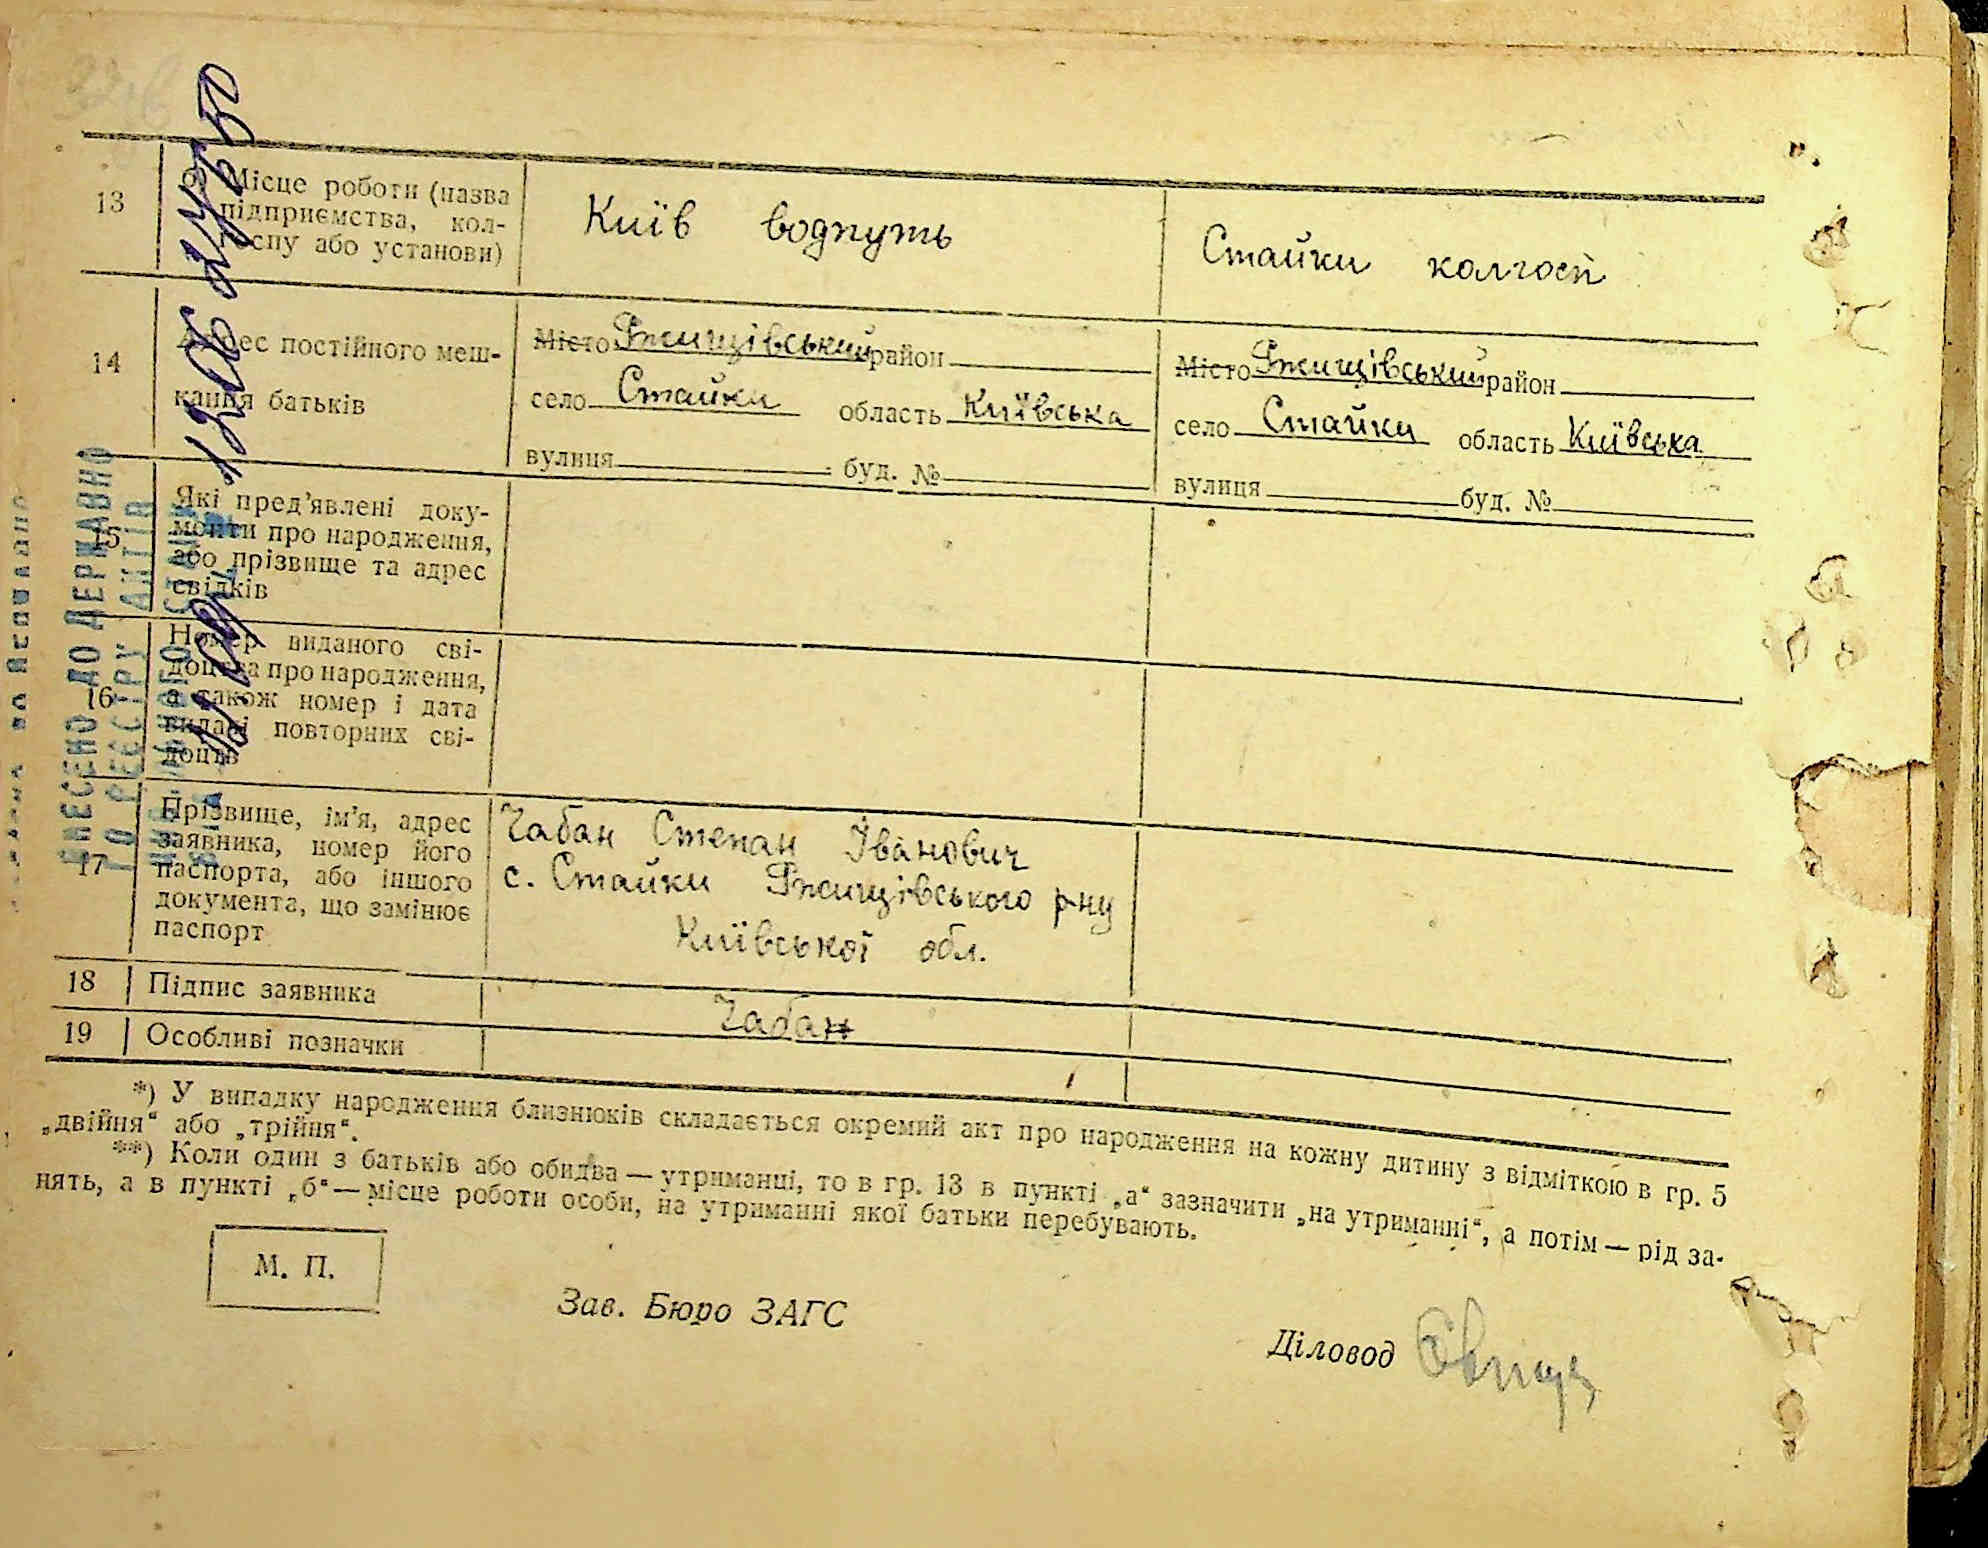 13
б) Місце роботи (назва
підприємства, кол-
госпу або установи)
Київ водпуть
Стайки колгосп
14
Адрес постійного меш-
кання батьків
Місто Ржищівський район
село Стайки область Київська
вулиця буд. №
Місто Ржищівський район
село Стайки область Київська
вулиця буд. №
15
Які пред'явлені доку-
менти про народження,
або прізвище та адрес
свідків
16
Номер виданого сві-
доцтва про народження,
а також номер і дата
видачі повторних сві-
доцтв
17
Прізвище, ім'я, адрес
заявника, номер його
паспорта, або іншого
документа, що замінює
паспорт
Чабан Степан Іванович
с. Стайки Ржищівського р-ну
Київської обл.
18 Підпис заявника
Чабан
19 Особливі позначки
*) У випадку народження близнюків складається окремий акт про народження на кожну дитину з відміткою в гр. 5
„двійня“ або „трійня“.
**) Коли один з батьків або обидва — утриманці, то в гр. 13 в пункті „а“ зазначити „на утриманні“, а потім — рід за-
нять, а в пункті „б“ — місце роботи особи, на утриманні якої батьки перебувають.
М. П.
Зав. Бюро ЗАГС
Діловод
ВНЕСЕНО ДО ДЕРЖАВНО
ГО РЕЄСТРУ АКТІВ